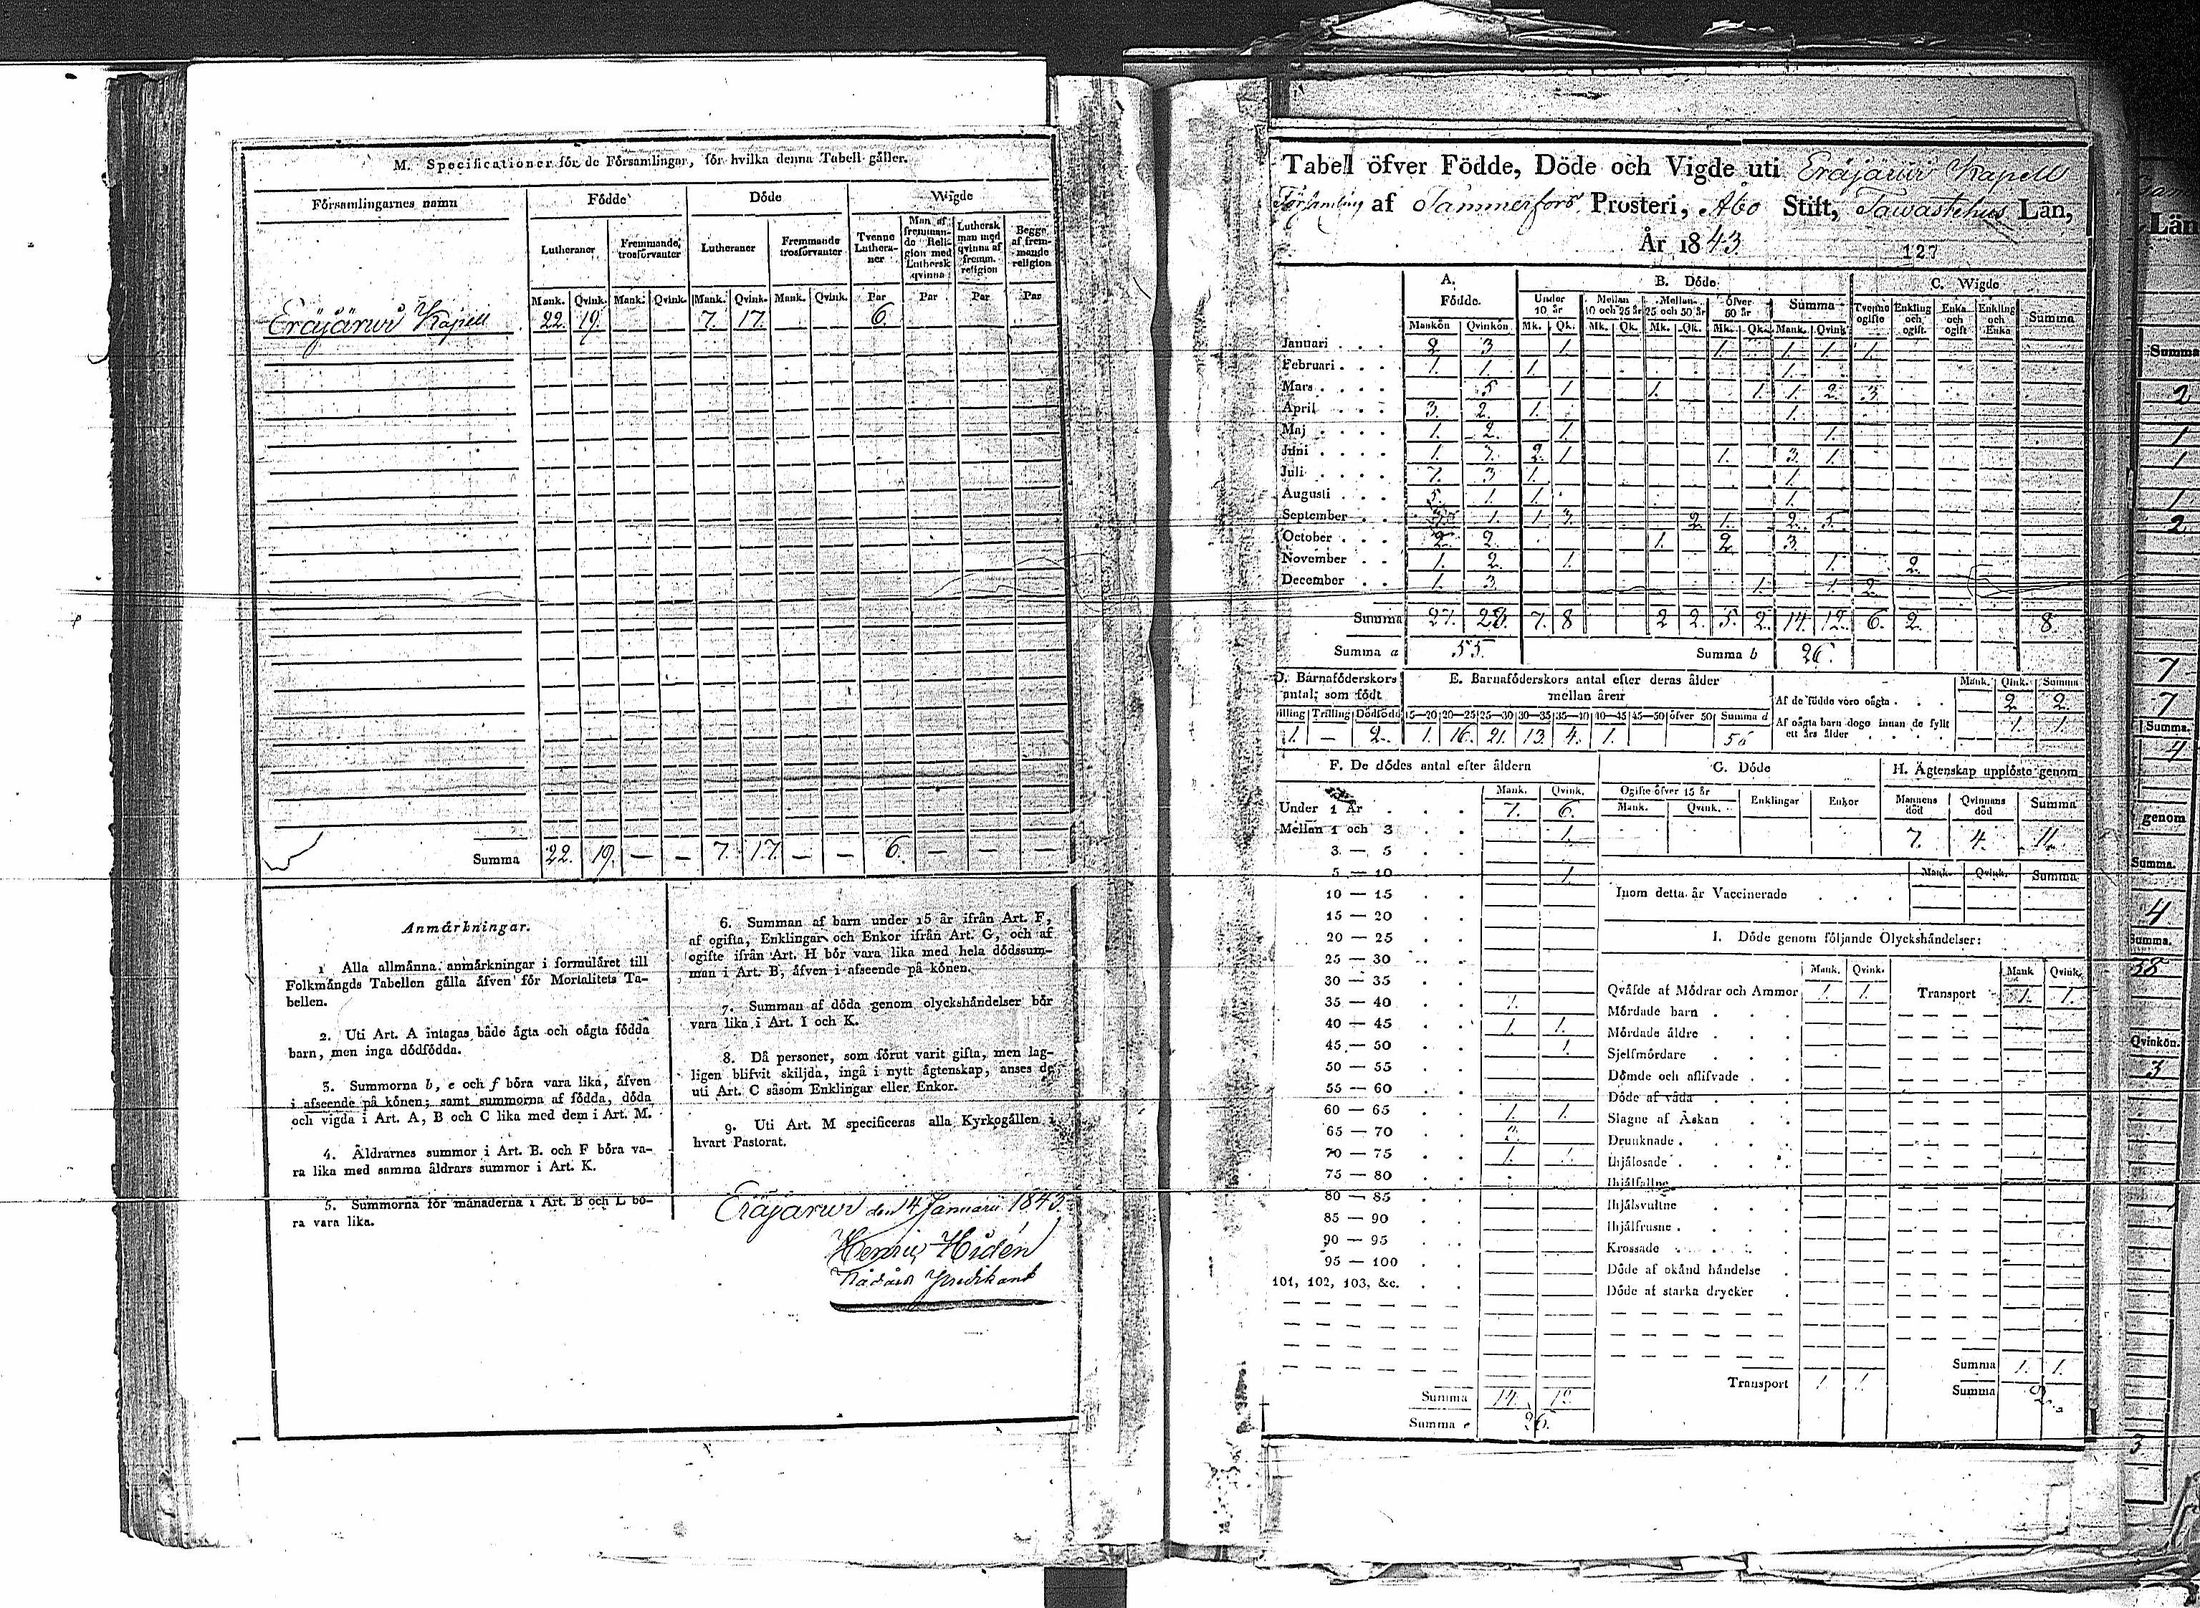 M. Specificationer för de Församlingar, för hvilka denna Tabell gäller.
Församlingarnes namn Födde Döde Wigde
Lutheraner Fremmande trosförvanter Lutheraner Fremmande trosförvanter Tvenne Lutheraner Man af fremmande Religion med Luthersk qvinna Luthersk man med qvinna af fremm. religion Begge af fremmande religion
Mank. Qvink. Mank. Qvink. Mank. Qvink. Mank. Qvink. Par Par Par Par
Eräjärwi Kapell 22. 19. 7. 17. 6.
Summa 22. 19. — — 7. 17. — — 6. — — —
Anmärkningar.
1 Alla allmänna anmärkningar i formuläret till
Folkmängds Tabellen gälla äfven för Mortalitets Ta-
bellen.
2. Uti Art. A intagas både ägta och oägta födda
barn, men inga dödfödda.
3. Summorna b, e och f böra vara lika, äfven
i afseende på könen; samt summorna af födda, döda
och vigda i Art. A, B och C lika med dem i Art. M.
4. Åldrarnes summor i Art. B. och F böra va-
ra lika med samma åldrars summor i Art. K.
5. Summorna för månaderna i Art. B och L bö-
ra vara lika.
6. Summan af barn under 15 år ifrån Art. F,
af ogifta, Enklingar och Enkor ifrån Art. G, och af
ogifte ifrån Art. H bör vara lika med hela dödssum-
man i Art. B, äfven i afseende på könen.
7. Summan af döda genom olyckshändelser bör
vara lika i Art. I och K.
8. Då personer, som förut varit gifta, men lag-
ligen blifvit skiljda, ingå i nytt ägtenskap, anses de
uti Art. C såsom Enklingar eller Enkor.
9. Uti Art. M specificeras alla Kyrkogällen i
hvart Pastorat.
Eräjärwi den 14 Januarii 1843.
Henric Hidén
Predikant
Tabell öfver Födde, Döde och Vigde uti Eräjärwi Kapell
Församling af Tammerfors Prosteri, Åbo Stift, Tawastehus Län,
År 1843.
127
A. Födde. B. Döde C. Wigde
Under 10 år Mellan 10 och 25 år Mellan 25 och 50 år öfver 50 år Summa Tvenne ogifte Enkling och ogift Enka och ogift Enkling och Enka Summa
Mankön Qvinkön Mk. Qk. Mk. Qk. Mk. Qk. Mk. Qk. Mank. Qvink.
Januari 2 3 1. 1. 1. 1. 1.
Februari 1. 1. 1. 1.
Mars 5 1 1. 1. 1. 2. 3.
April 3. 2. 1. 1.
Maj 1. 2. 1. 1.
Juni 1. 3. 2. 1. 1. 3. 1.
Juli 7. 3 1. 1.
Augusti 5. 1. 1. 1.
September 1. 1. 3. 2. 1. 2. 5.
October 2. 2. 1. 2. 3.
November 1. 2. 1. 1. 2.
December 1. 3. 1. 1. 2.
Summa 27. 28. 7. 8 2 2. 5. 2. 14. 12. 6. 2. 8.
Summa a 55. Summa b 26.
D. Barnaföderskors antal; som födt
E. Barnaföderskors antal efter deras ålder mellan åren
Mank. Qink. Summa
Af de födde voro oägta 2. 2.
Af oägta barn dogo innan de fyllt ett års ålder 1. 1.
Tvilling Trilling Dödfödd 15—20 20—25 25—30 30—35 35—40 40—45 45—50 öfver 50 Summa d
1. — 2. 1. 16. 21. 13. 4. 1.
F. De dödes antal efter åldern
Mank. Qvink.
Under 1 År 7. 6.
Mellan 1 och 3 1.
3 — 5
5 — 10 1.
10 — 15
15 — 20
20 — 25
25 — 30
30 — 35
35 — 40 1.
40 — 45 1. 1.
45 — 50 1.
50 — 55
55 — 60
60 — 65 1. 1.
65 — 70 2.
70 — 75 1. 1.
75 — 80
80 — 85
85 — 90
90 — 95
95 — 100
101, 102, 103, &c.
Summa 14. 12.
Summa e 26.
G. Döde
Ogifte öfver 15 år Enklingar Enkor
Mank. Qvink.
H. Ägtenskap upplöste genom
Mannens död Qvinnans död Summa
7. 4. 11.
Mank. Qvink. Summa
Inom detta år Vaccinerade
I. Döde genom följande Olyckshändelser:
Mank. Qvink. Mank Qvink.
Qväfde af Mödrar och Ammor 1. 1. Transport 1. 1.
Mördade barn
Mördade äldre
Sjelfmördare
Dömde och aflifvade
Döde af våda
Slagne af Åskan
Drunknade
Ihjälosade
Ihjälfallne
Ihjälsvultne
Ihjälfrusne
Krossade
Döde af okänd händelse
Döde af starka drycker
Transport 1. 1.
Summa 1. 1.
Summa 2.
Län
Summa
2
1
1
1
2
7
7
Summa.
4
genom
Summa.
4
Summa.
38
Qvinkön.
3
3.